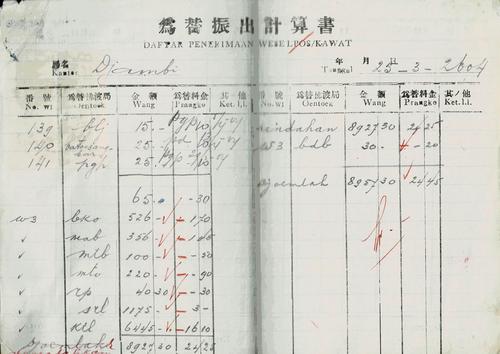 爲替振出計算書
DAFTAR PENERIMAAN WESELPOS/KAWAT
局名 年 月 日
Kantor Djambi Tanggal 25-3-2604
番號 爲替拂渡局 金額 爲替料金 其ノ他 番號 爲替拂渡局 金額 爲替料金 其ノ他
No. wl Oentoek Wang Prangko Ket. l.l. No. wl Oentoek Wang Prangko Ket. l.l.
139 blj 15.- pindahan 8927 30 24 25
140 25 w3 bdb 30.- - 20
141 pgp 25 djoemlah 8957 30 24 45
65.- - 30
w3 bko 526 - 1 70
mab 356 -
mtb 100 - - 50
mto 220 - - 90
rp 40 30 - 30
srl 1175 - 3 -
ktl 6445 - 16 10
djoemlah 8927 30 24 25